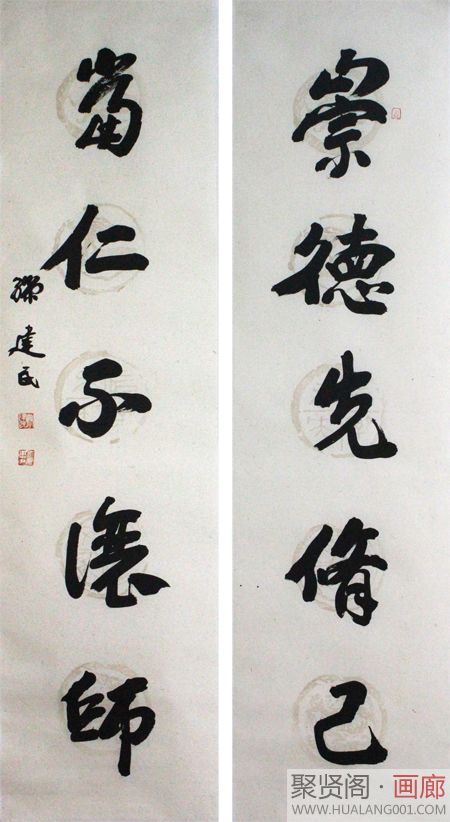 崇德先脩己
當仁不讓師
孫建民
聚贤阁·画廊
WWW.HUALANG001.COM